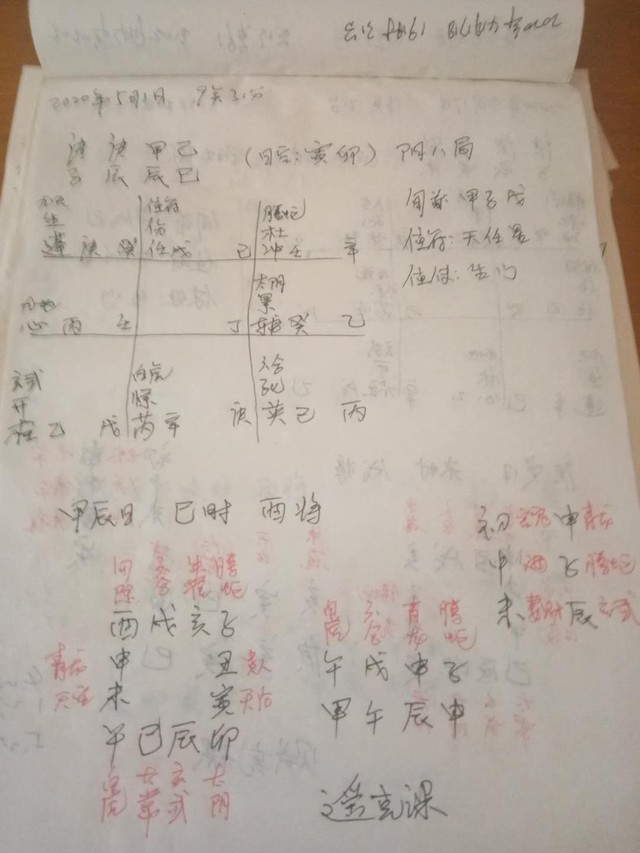 2020年5月1日 9点31分
庚 庚 甲 己
子 辰 辰 巳
(日空:寅卯) 阳八局
旬首:甲子戊
值符:天任星
值使:生门
九天 值符 腾蛇
生 伤 杜
蓬 庚 癸 任 戊 己 冲 壬 辛
九地 太阴
景
心 丙 壬 丁 辅 癸 乙
玄武 白虎 六合
开 惊 死
柱 乙 戊 芮 辛 庚 英 己 丙
甲辰日 巳时 酉将
初 申 青龙
中 子 腾蛇
末 辰 玄武
勾陈 六合 朱雀 腾蛇
酉 戌 亥 子
青龙 申 丑 贵人
天空 未 寅 天后
午 巳 辰 卯
白虎 太常 玄武 太阴
白虎 六合 青龙 腾蛇
午 戌 申 子
甲 午 辰 申
遥克课